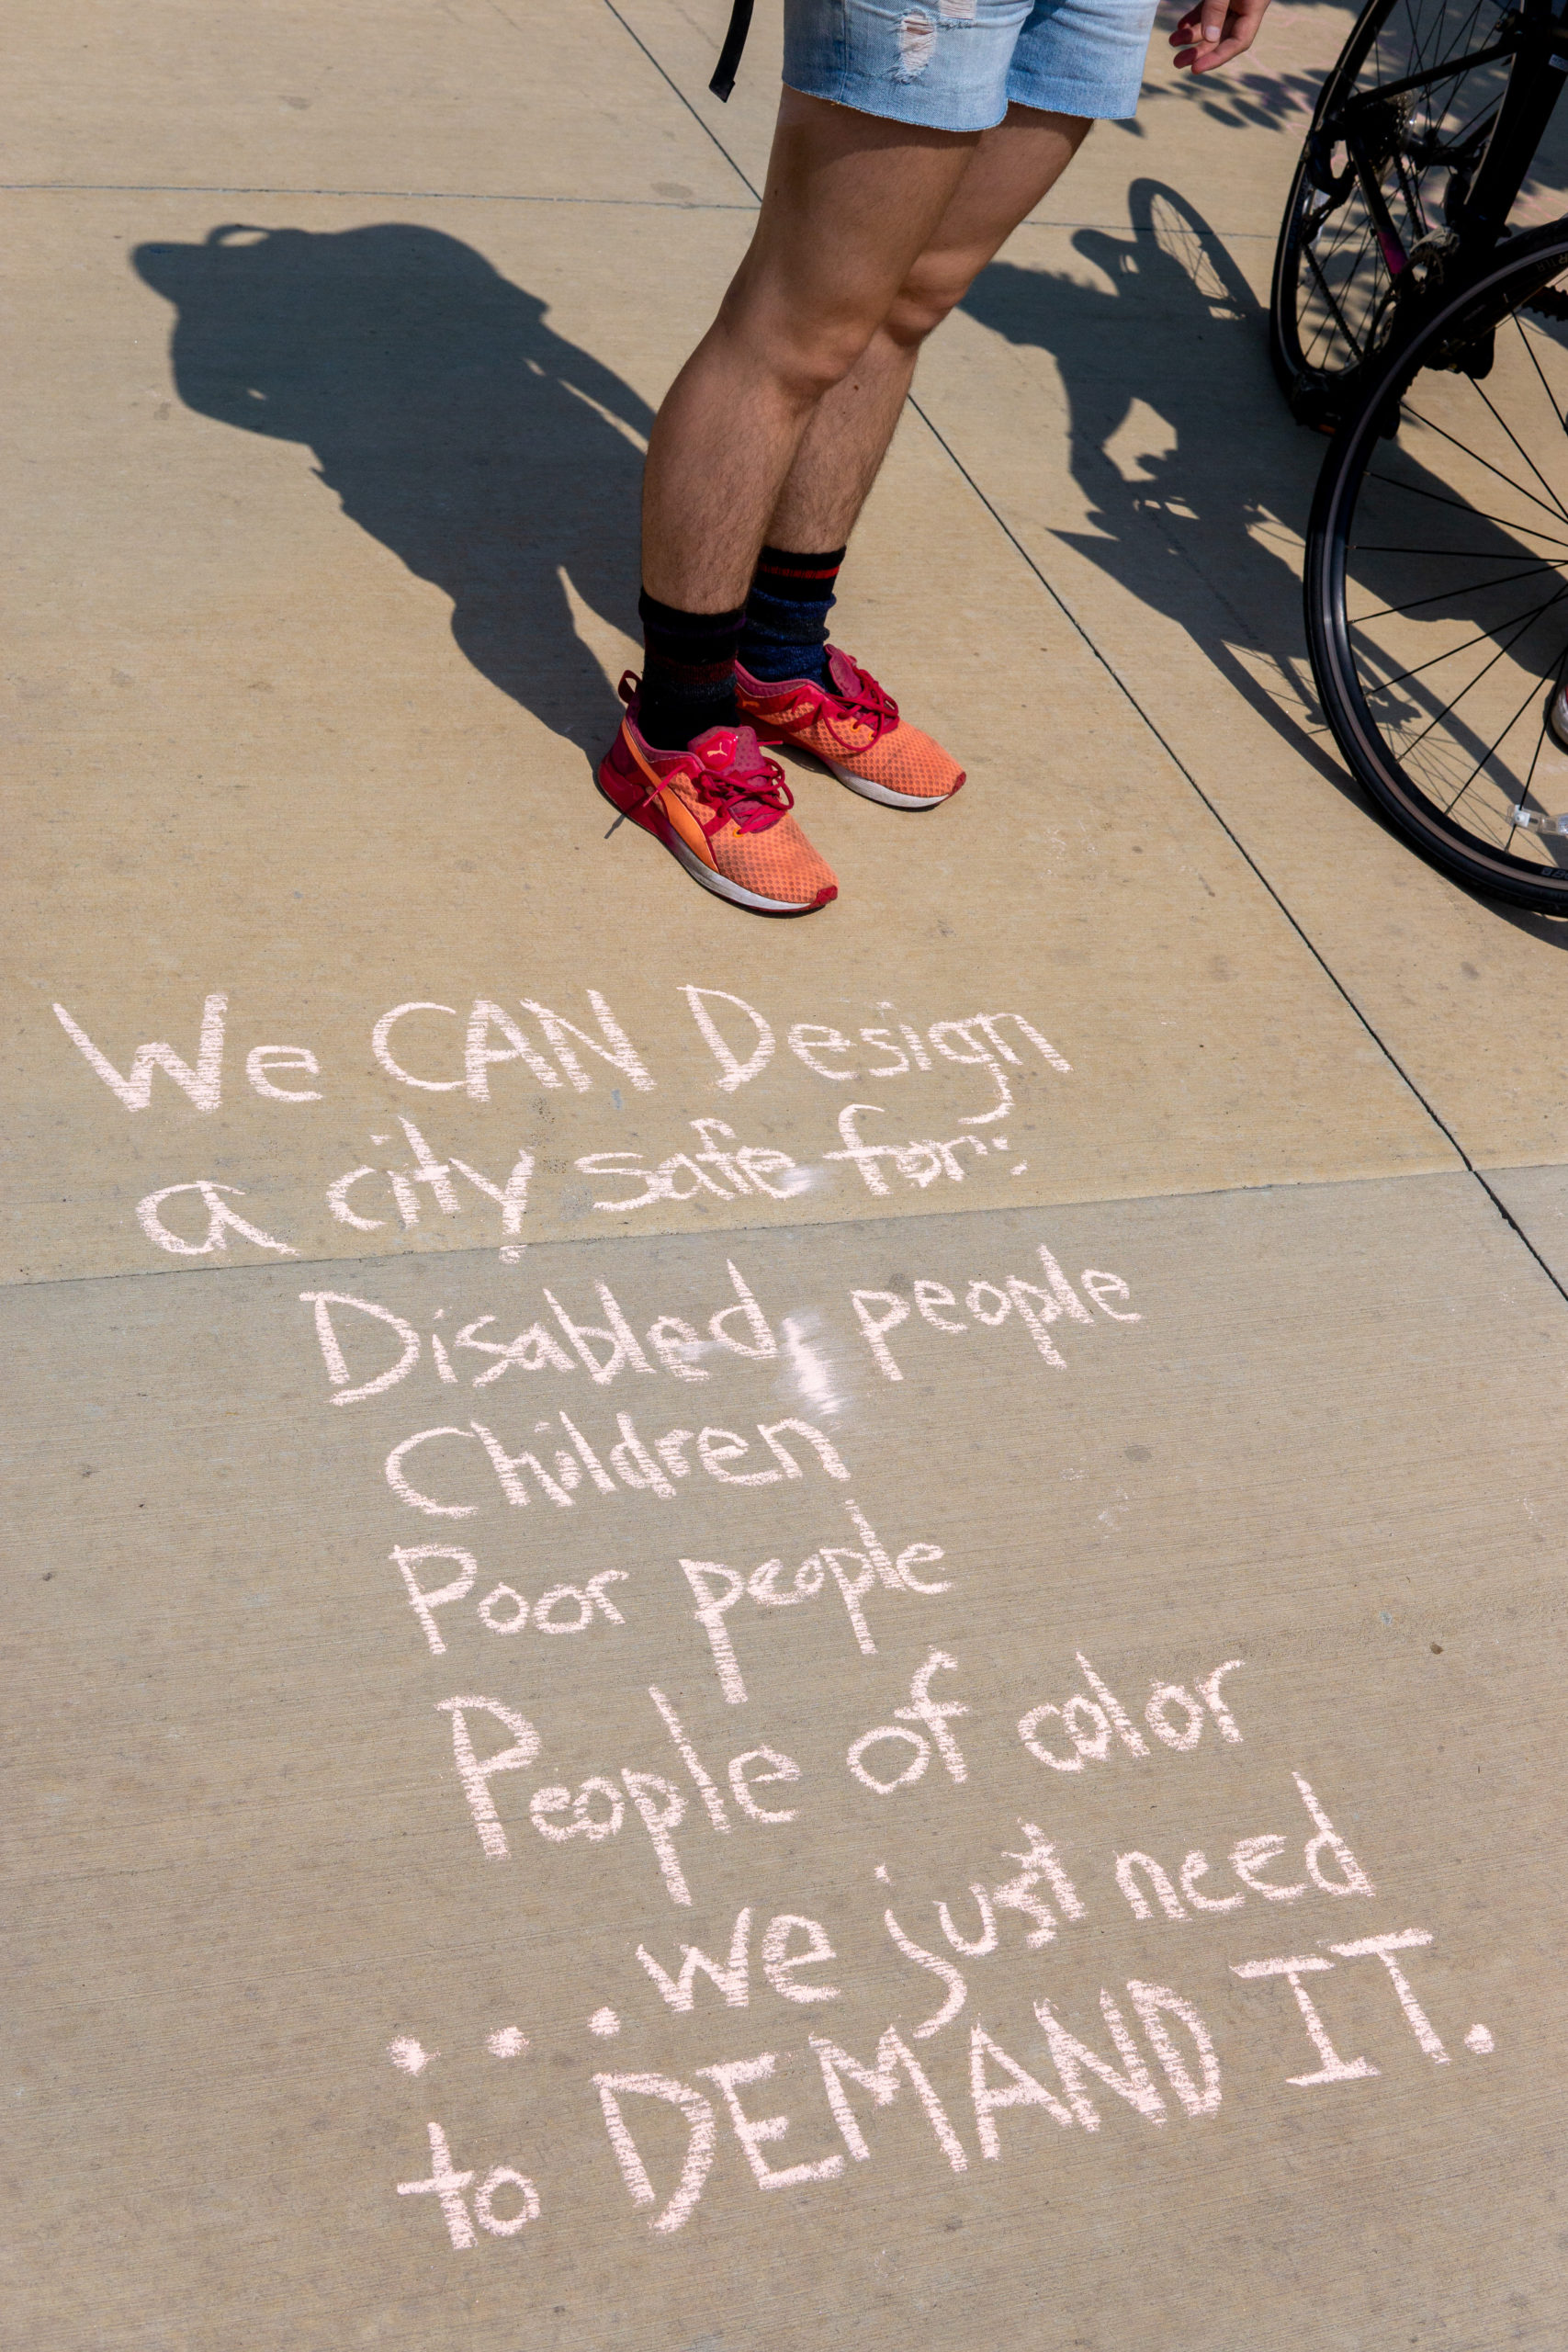 We CAN Design
a city safe for:
Disabled people
Children
Poor people
People of color
...we just need
to DEMAND IT.